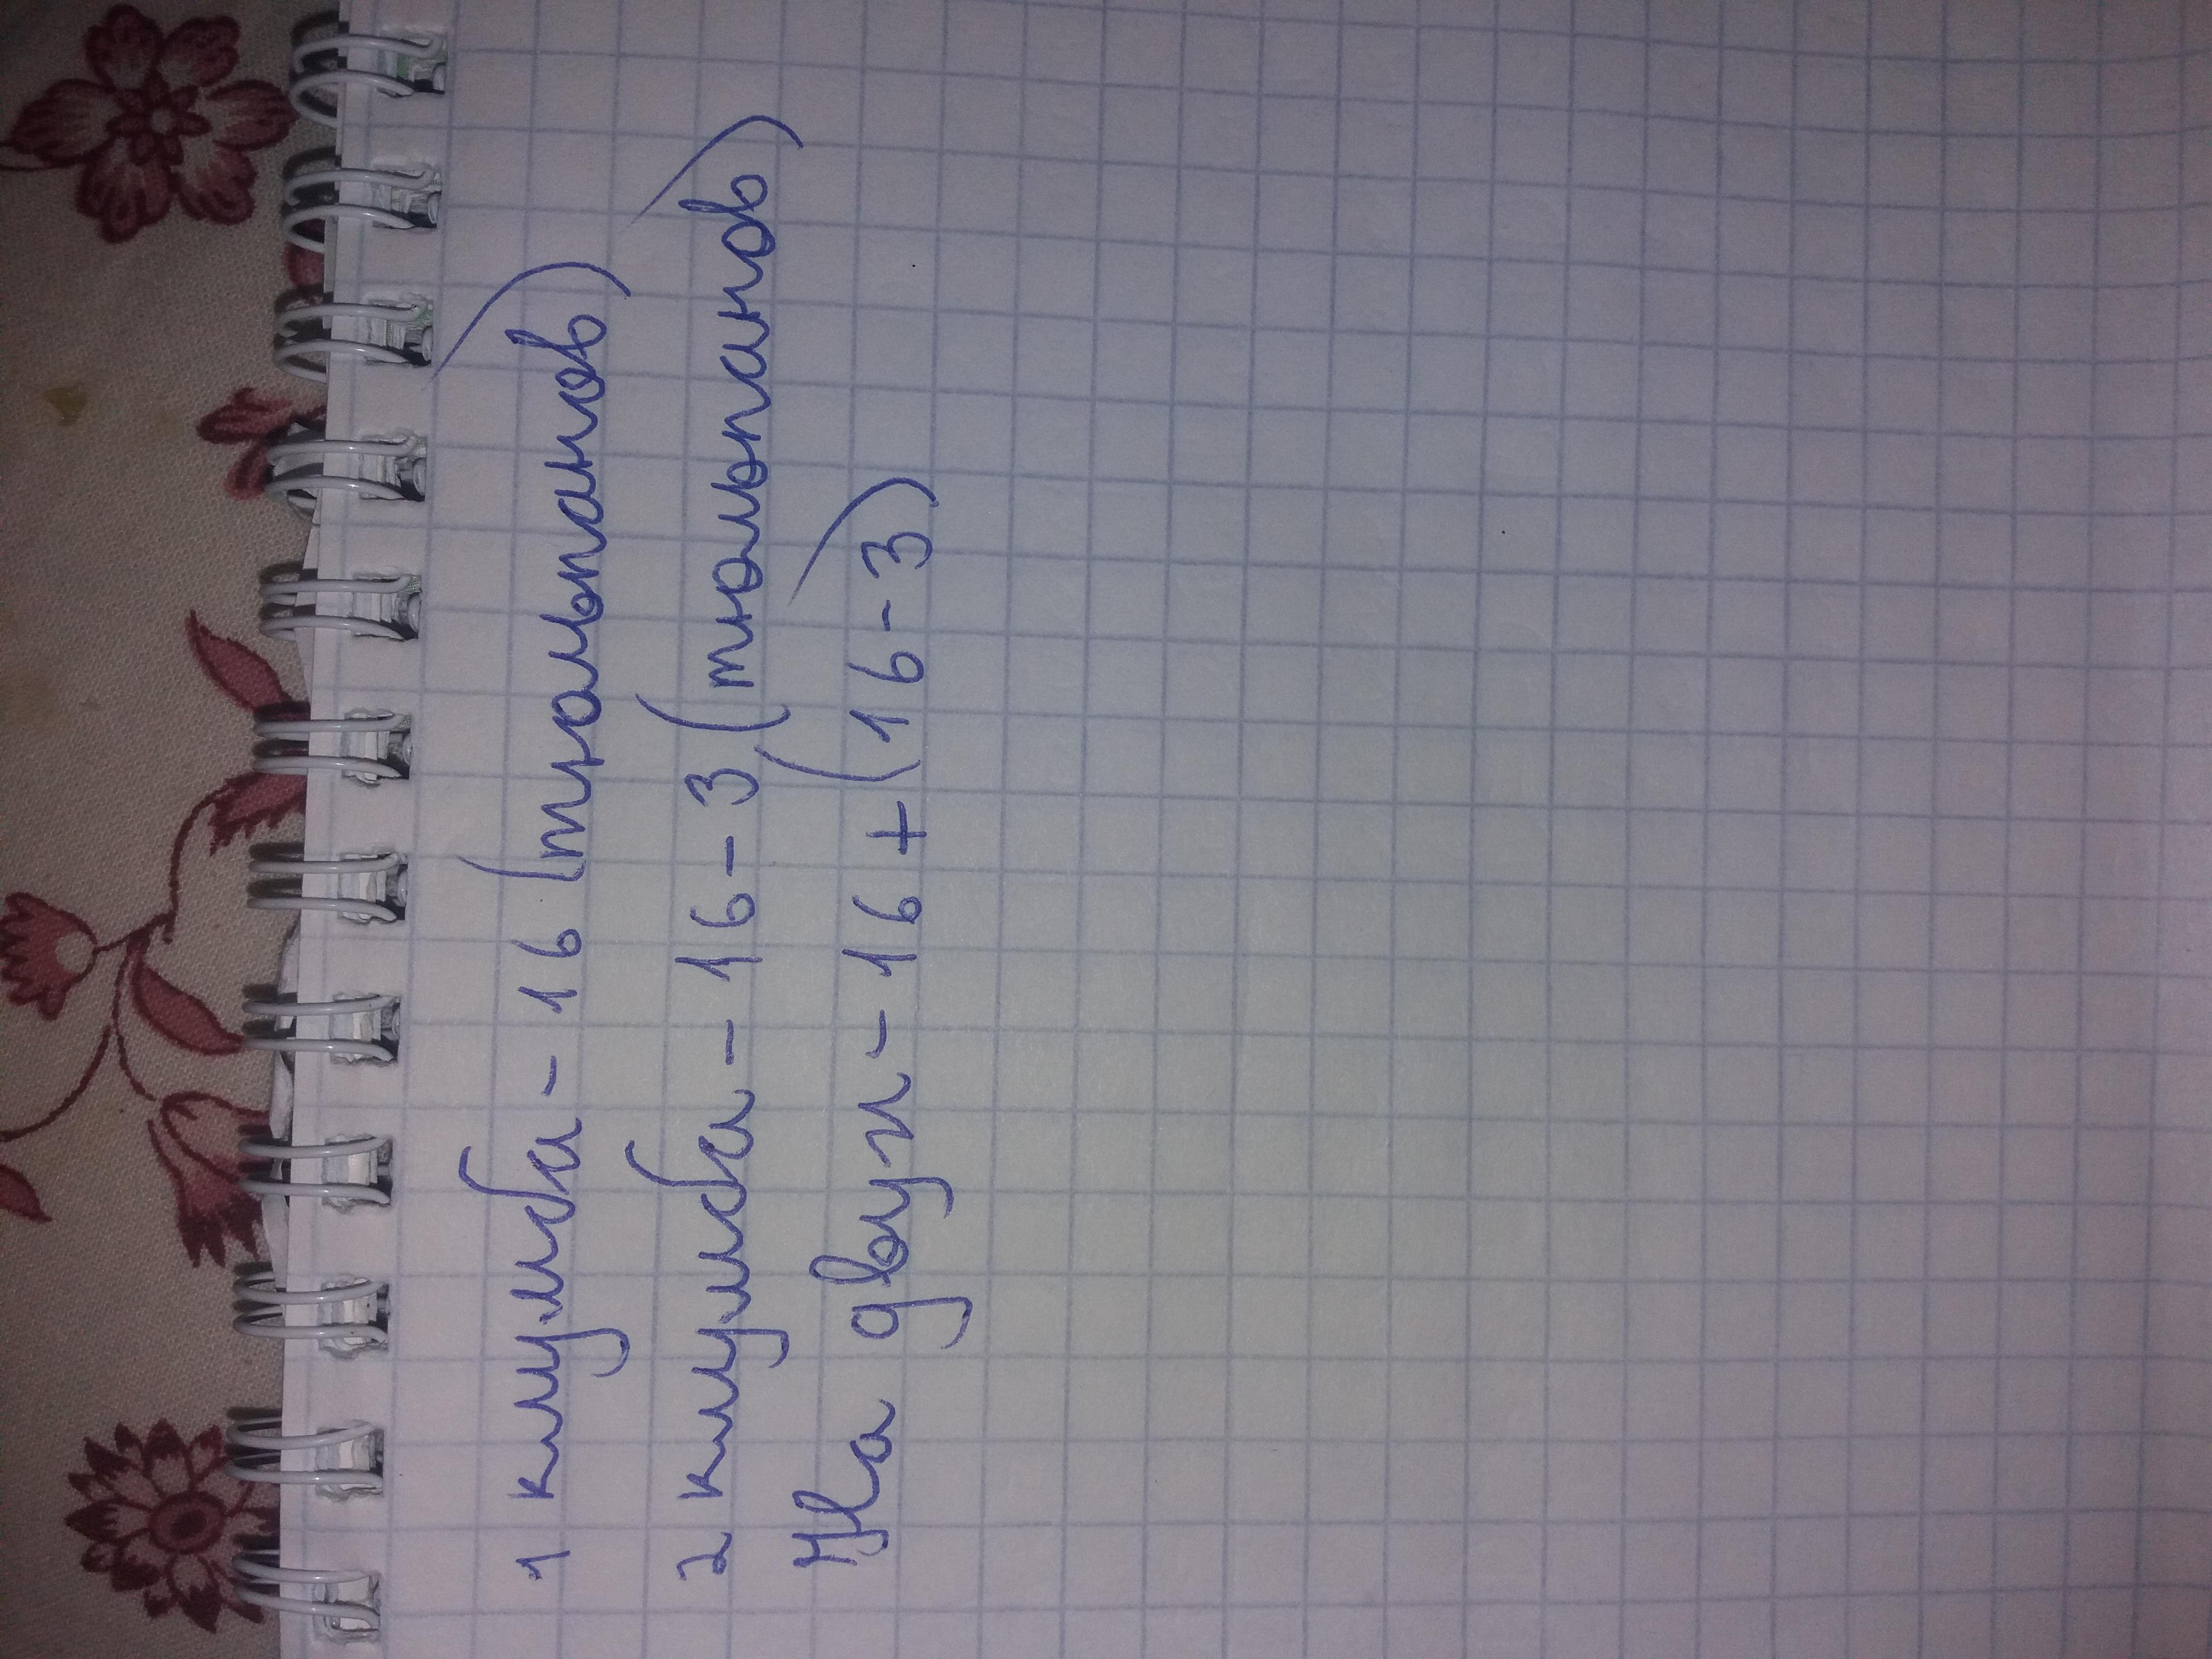 1 клумба - 16 (тюльпанов)
2 клумба - 16 - 3 (тюльпанов)
На двух - 16 + (16 - 3)